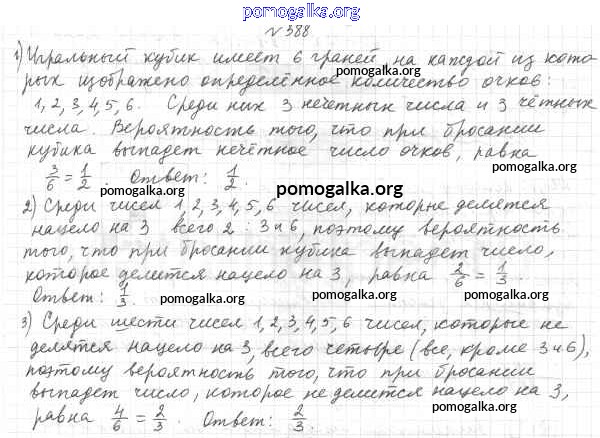 pomogalka.org
№ 388
1) Игральный кубик имеет 6 граней, на каждой из кото
рых изображено определённое количество очков: pomogalka.org
1, 2, 3, 4, 5, 6. Среди них 3 нечетных числа и 3 чётных
числа. Вероятность того, что при бросании pomogalka.org
кубика выпадет нечётное число очков, равна
3/6 = 1/2. Ответ: 1/2.
pomogalka.org pomogalka.org
2) Среди чисел 1, 2, 3, 4, 5, 6 чисел, которые делятся
нацело на 3 всего 2 : 3 и 6, поэтому вероятность
pomogalka.org
того, что при бросании кубика выпадет число,
которое делится нацело на 3, равна 2/6 = 1/3.
Ответ: 1/3. pomogalka.org pomogalka.org pomogalka.org
3) Среди шести чисел 1, 2, 3, 4, 5, 6 чисел, которые не
делятся нацело на 3, всего четыре (все, кроме 3 и 6),
поэтому вероятность того, что при бросании
выпадет число, которое не делится нацело на 3,
равна 4/6 = 2/3. Ответ: 2/3. pomogalka.org
pomogalka.org